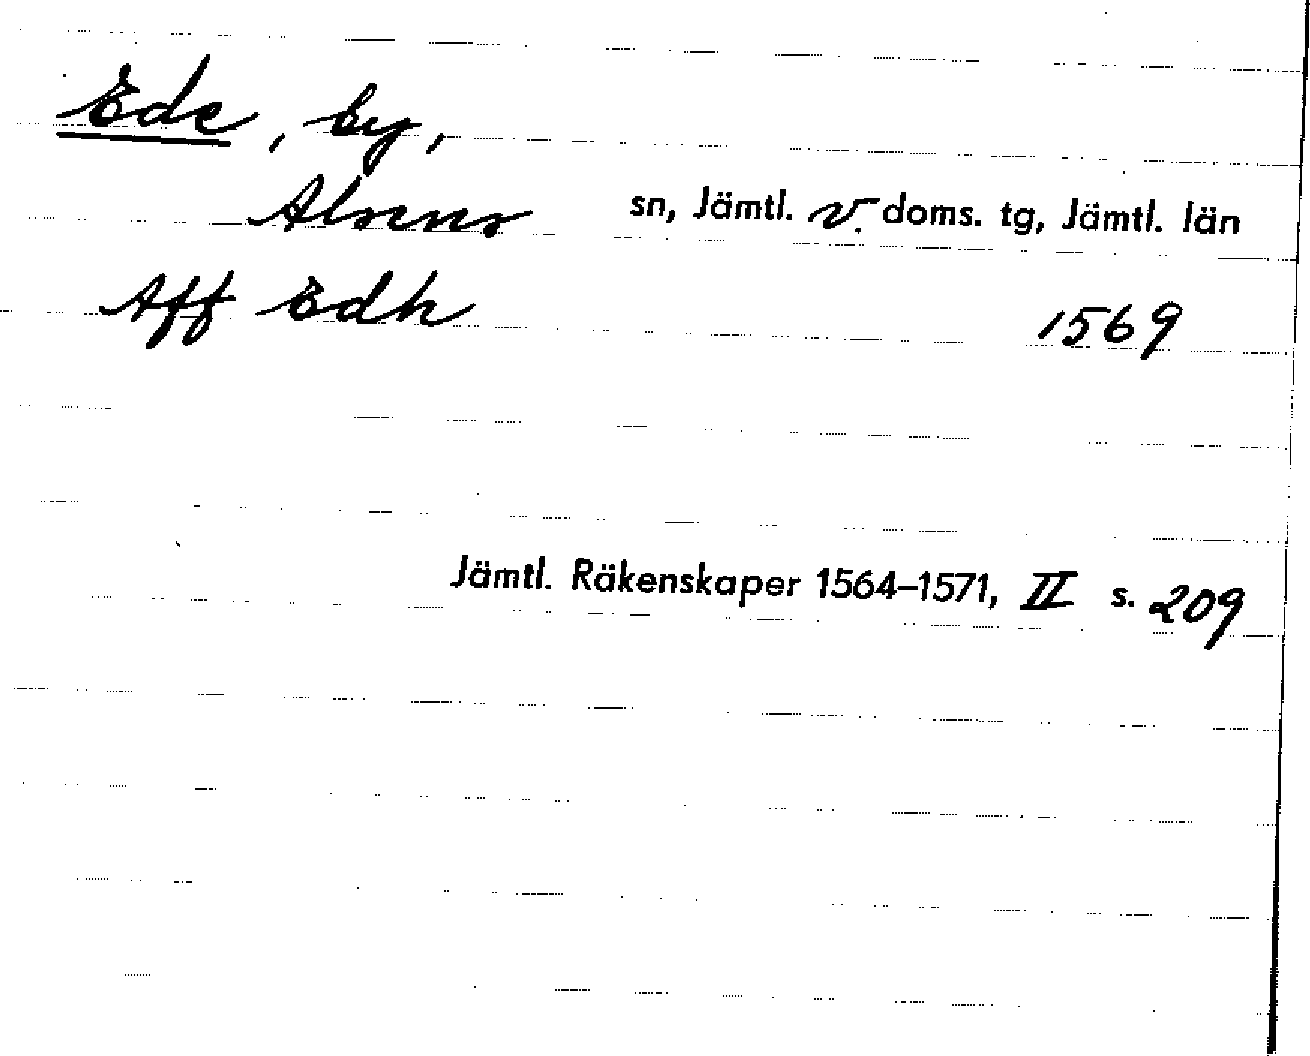 Ede, by,
Alsens sn, Jämtl. v. doms. tg, Jämtl. län
Aff Edh 1569
Jämtl. Räkenskaper 1564–1571, II s. 209